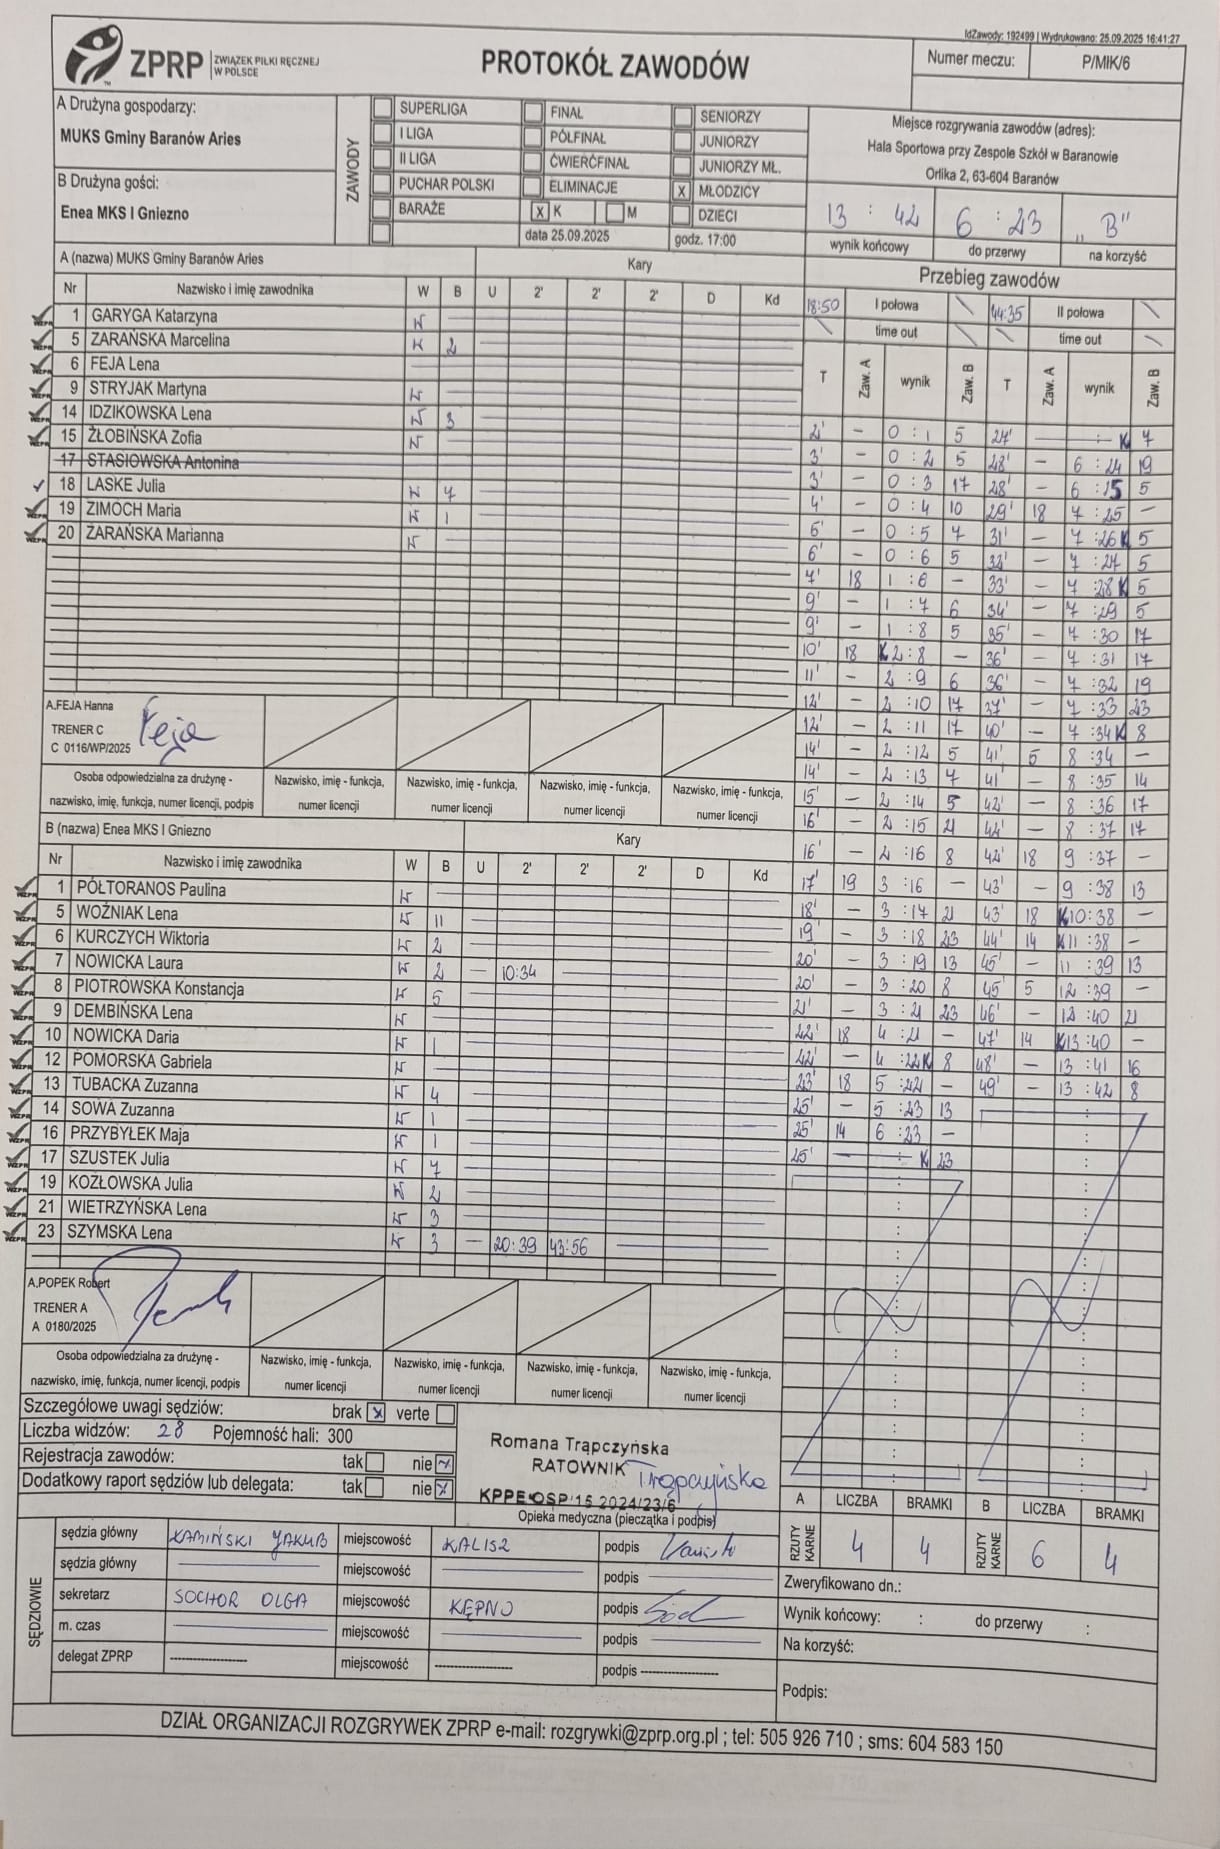 IdZawody: 192499 | Wydrukowano: 25.09.2025 16:41:27
ZPRP ZWIĄZEK PIŁKI RĘCZNEJ W POLSCE
PROTOKÓŁ ZAWODÓW
Numer meczu: P/MIK/6
A Drużyna gospodarzy:
MUKS Gminy Baranów Aries
B Drużyna gości:
Enea MKS I Gniezno
ZAWODY
SUPERLIGA FINAŁ SENIORZY
I LIGA PÓŁFINAŁ JUNIORZY
II LIGA ĆWIERĆFINAŁ JUNIORZY MŁ.
PUCHAR POLSKI ELIMINACJE X MŁODZICY
BARAŻE X K M DZIECI
data 25.09.2025 godz. 17:00
Miejsce rozgrywania zawodów (adres):
Hala Sportowa przy Zespole Szkół w Baranowie
Orlika 2, 63-604 Baranów
13 : 42 6 : 23 „B”
wynik końcowy do przerwy na korzyść
A (nazwa) MUKS Gminy Baranów Aries Kary
Nr Nazwisko i imię zawodnika W B U 2' 2' 2' D Kd
1 GARYGA Katarzyna W
5 ZARAŃSKA Marcelina W 2
6 FEJA Lena
9 STRYJAK Martyna W
14 IDZIKOWSKA Lena W 3
15 ŻŁOBIŃSKA Zofia W
17 STASIOWSKA Antonina
18 LASKE Julia W 7
19 ZIMOCH Maria W 1
20 ŻARAŃSKA Marianna W
A.FEJA Hanna
TRENER C
C 0116/WP/2025
Feja
Osoba odpowiedzialna za drużynę - nazwisko, imię, funkcja, numer licencji, podpis
Nazwisko, imię - funkcja, numer licencji
Nazwisko, imię - funkcja, numer licencji
Nazwisko, imię - funkcja, numer licencji
Nazwisko, imię - funkcja, numer licencji
B (nazwa) Enea MKS I Gniezno Kary
Nr Nazwisko i imię zawodnika W B U 2' 2' 2' D Kd
1 PÓŁTORANOS Paulina W
5 WOŹNIAK Lena W 11
6 KURCZYCH Wiktoria W 2
7 NOWICKA Laura W 2 — 10:34
8 PIOTROWSKA Konstancja W 5
9 DEMBIŃSKA Lena W
10 NOWICKA Daria W 1
12 POMORSKA Gabriela W
13 TUBACKA Zuzanna W 4
14 SOWA Zuzanna W 1
16 PRZYBYŁEK Maja W 1
17 SZUSTEK Julia W 7
19 KOZŁOWSKA Julia W 2
21 WIETRZYŃSKA Lena W 3
23 SZYMSKA Lena W 3 — 20:39 43:56
A.POPEK Robert
TRENER A
A 0180/2025
Osoba odpowiedzialna za drużynę - nazwisko, imię, funkcja, numer licencji, podpis
Nazwisko, imię - funkcja, numer licencji
Nazwisko, imię - funkcja, numer licencji
Nazwisko, imię - funkcja, numer licencji
Nazwisko, imię - funkcja, numer licencji
Przebieg zawodów
18:50 I połowa 44:35 II połowa
time out time out
T Zaw. A wynik Zaw. B T Zaw. A wynik Zaw. B
2' — 0 : 1 5 27' — : K 7
3' — 0 : 2 5 28' — 6 : 24 19
3' — 0 : 3 17 28' — 6 : 25 5
4' — 0 : 4 10 29' 18 7 : 25 —
5' — 0 : 5 7 31' — 7 : 26 K 5
6' — 0 : 6 5 32' — 7 : 27 5
7' 18 1 : 6 — 33' — 7 : 28 K 5
9' — 1 : 7 6 34' — 7 : 29 5
9' — 1 : 8 5 35' — 7 : 30 17
10' 18 K 2 : 8 — 36' — 7 : 31 17
11' — 2 : 9 6 36' — 7 : 32 19
12' — 2 : 10 17 37' — 7 : 33 23
12' — 2 : 11 17 40' — 7 : 34 K 8
14' — 2 : 12 5 41' 5 8 : 34 —
14' — 2 : 13 7 41' — 8 : 35 14
15' — 2 : 14 5 42' — 8 : 36 17
16' — 2 : 15 21 42' — 8 : 37 17
16' — 2 : 16 8 42' 18 9 : 37 —
17' 19 3 : 16 — 43' — 9 : 38 13
18' — 3 : 17 21 43' 18 K 10 : 38 —
19' — 3 : 18 23 44' 14 K 11 : 38 —
20' — 3 : 19 13 45' — 11 : 39 13
20' — 3 : 20 8 45' 5 12 : 39 —
21' — 3 : 21 23 46' — 12 : 40 21
22' 18 4 : 21 — 47' 14 K 13 : 40 —
22' — 4 : 22 K 8 48' — 13 : 41 16
23' 18 5 : 22 — 49' — 13 : 42 8
25' — 5 : 23 13
25' 14 6 : 23 —
25' — : K 23
Szczegółowe uwagi sędziów: brak x verte
Liczba widzów: 28 Pojemność hali: 300
Rejestracja zawodów: tak nie x
Dodatkowy raport sędziów lub delegata: tak nie x
Romana Trąpczyńska
RATOWNIK Trąpczyńska
KPPE OSP/15 2024/23/6
Opieka medyczna (pieczątka i podpis)
A LICZBA BRAMKI B LICZBA BRAMKI
RZUTY KARNE 4 4 RZUTY KARNE 6 4
SĘDZIOWIE
sędzia główny KAMIŃSKI JAKUB miejscowość KALISZ podpis
sędzia główny miejscowość podpis
sekretarz SOCHOR OLGA miejscowość KĘPNO podpis
m. czas miejscowość podpis
delegat ZPRP ---------- miejscowość ---------- podpis ----------
Zweryfikowano dn.:
Wynik końcowy: : do przerwy :
Na korzyść:
Podpis:
DZIAŁ ORGANIZACJI ROZGRYWEK ZPRP e-mail: rozgrywki@zprp.org.pl ; tel: 505 926 710 ; sms: 604 583 150